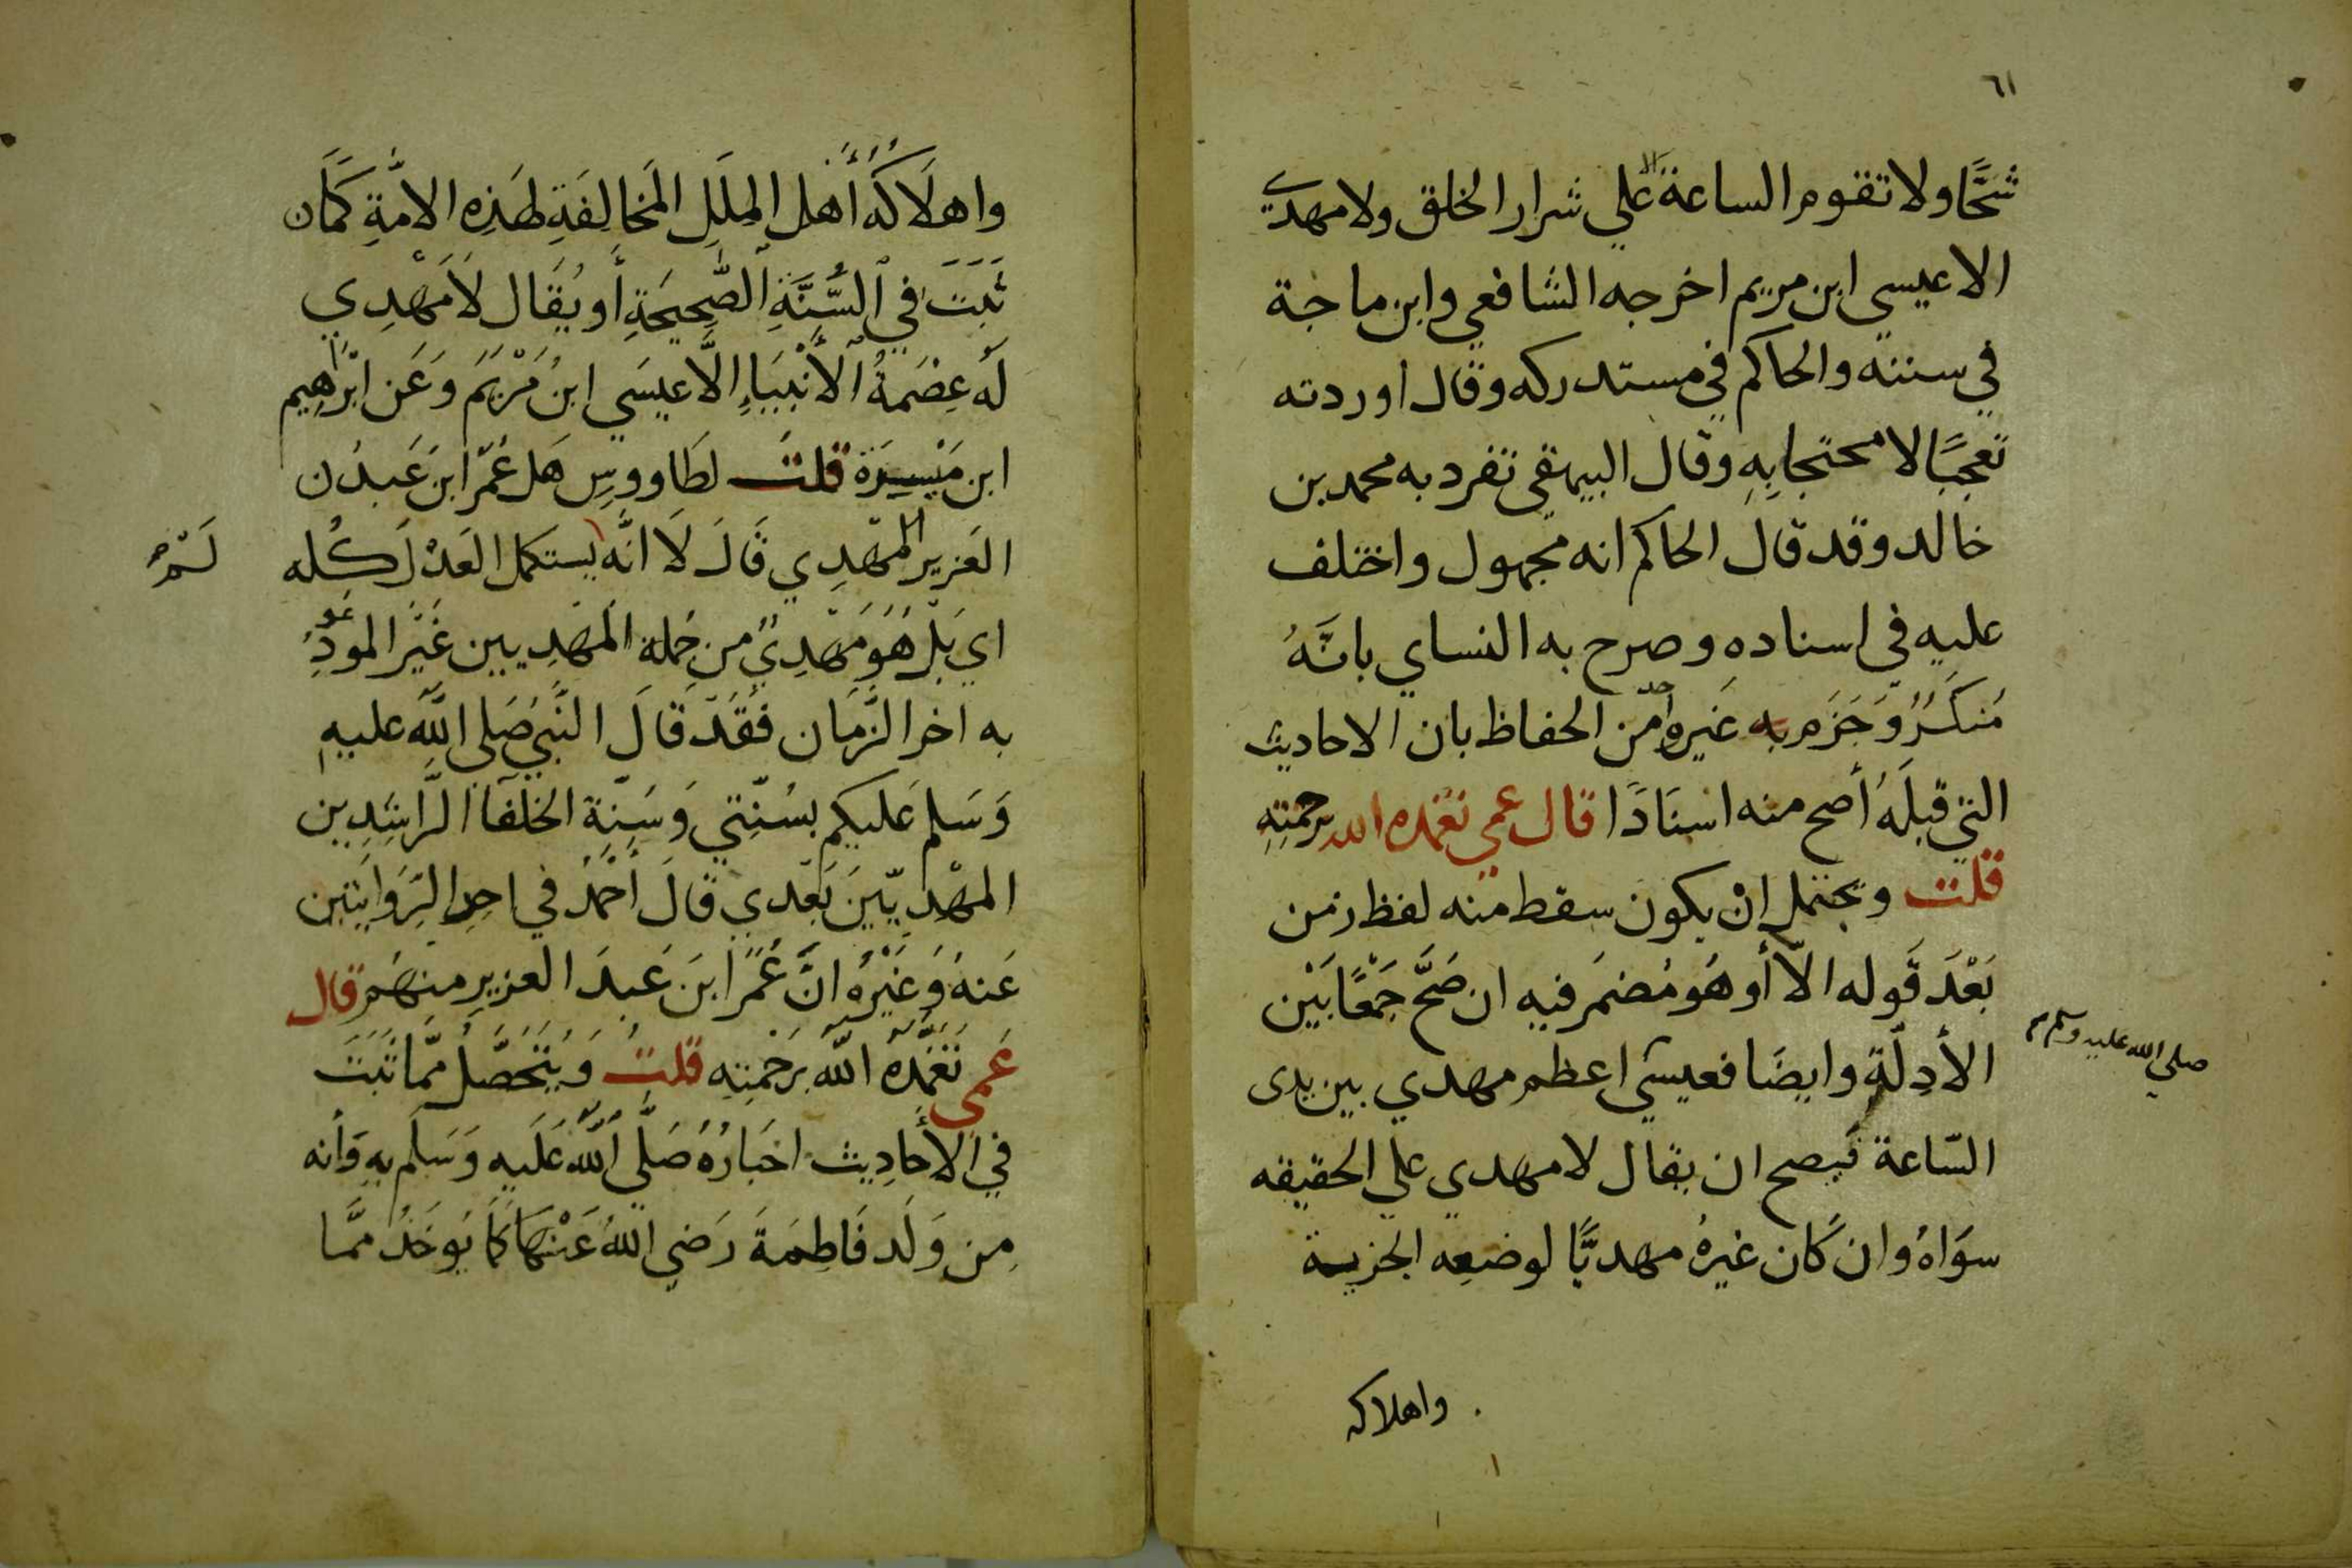 ٦١
شحًّا ولا تقوم الساعة الا علي شرار الخلق ولا مهدي
الا عيسي ابن مريم اخرجه الشافعي وابن ماجة
في سننه والحاكم في مستدركه وقال اوردته
تعجبًا لا محتجا بِهِ وقال البيهقي تفرد به محمد بن
خالد وقد قال الحاكم انه مجهول واختلف
عليه في اسناده وصرح به النساي بانَّهُ
مُنكَرٌ وَجَزَم به غَيره احد من الحفاظ بان الاحاديث
التي قبلَهُ أصح منه اسنَادًا قال عمي تغمده الله برحمتِهِ
قلت ويحتمل انْ يكون سقط منه لفظ زمن
بَعْدَ قَوله الاّ أو هُو مُضمَر فيه ان صَحَّ جَمْعًا بَيْن
الأدِلّةِ وايضًا فعيسَي اعظم مهدي بين يدى
صلي الله عليه وسلم
السّاعة فَيصح ان يقال لا مهدي علي الحقيقه
سوَاهُ وان كَان غيرهُ مهديًّا لوضعِه الجزية
واهلاكه
واهلَاكَهُ أهل المِلَلِ المُخَالِفَةِ لهَذِه الامَّةِ كَمَان
ثَبَتَ في السُّنَّةِ الصَّحِيحَةِ أو يُقَال لَا مَهْدِي
لَه عِصْمَةُ الأَنْبِيَاءِ الَّا عيسَي ابنُ مَرْيَمَ وَعَن ابْرَاهِيم
ابن مَيْسِرَة قلت لطَاووسِ هَل عُمَر ابنَ عَبدُ ن
العَزيز المَهْدِي قَالَ لَا انَّه يستكمل العَدْلَ كُله
لَمْ
اي بَلْ هُوَ مَهْدِيٌ من جُملة المَهْدِيين غَيْر الموعودِ
به اخر الزَّمَان فَقَدْ قَالَ النَّبيُ صَلي اللَّه عليهِ
وَسَلم عَليكم بسُنَّتي وَسُنّة الخلَفَا الرَّاشِدِين
المهْدِيّينَ بَعْدي قَالَ أحْمَدُ في احدِ الرّوَايَتين
عَنهُ وَغَيْرُه انَّ عُمَر ابنَ عَبدَ العزيزِ منهُم قال
عَمي تَغَمَّدَهُ اللَّه برَحْمتِه قلتُ وَيَتَحَصَّلُ ممَّا ثَبَتَ
في الأحَادِيث اخبَارُهُ صَلَّي اللَّه عَلَيهِ وَسَلّم بهِ وَأنه
مِن وَلَد فَاطِمَةَ رَضي اللهُ عَنْهَا كَمَا يُوخَذُ ممَّا